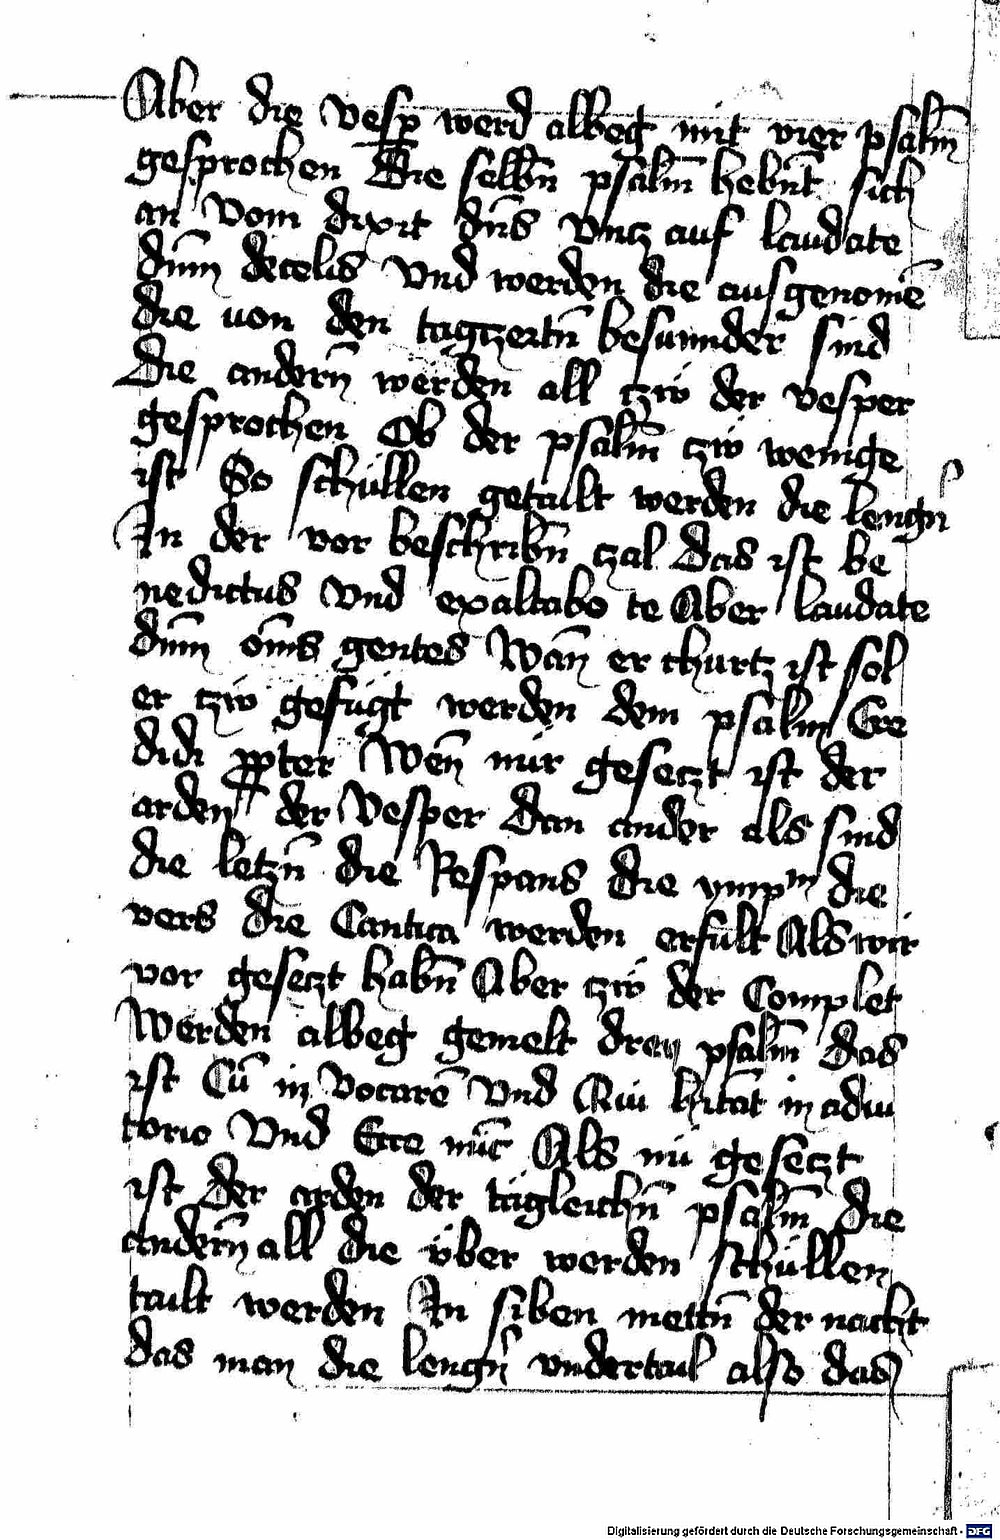 Aber die vesp werd albeg mit vier psalm̄
gesprochen Die selbn̄ psalm̄ hebnt̄ sich
an vom dixit dn̄s vncz auf laudate
dnm̄ decelis vnd werden die ausgenomē
die von den tagczeitn̄ besunnder sind
Die andern̄ werden all czw der vesper
gesprochen Ob der psalm̄ czw wenige
ist So schüllen getailt werden die lengn̄
In der vor beschribn̄ czal Das ist be
nedictus vnd exaltabo te Aber laudate
dnm̄ om̄s gentes Wan̄ er churtz ist sol
er czw gefügt werden dem psalm Cre
didi ꝓpter Wen̄ nur gesetzt ist der
arden der Vesper Dan ander als sind
die letzn̄ die Respans die ymp die
vers die Cantica werden erfült Als wir
vor gesetzt habn̄ Aber czw der Complet
Werden albeg gemelt dray psalm̄ Das
ist Cū in vocarē vnd Qui hitāt in adiu
torio Vnd Ecce nūc Als nu gesetzt
ist Der arden der tägleichn̄ psalm̄ die
andern̄ all die über werden schüllen
tailt werden In siben mettn̄ der nacht
das man die lengn̄ vndertail also das
Digitalisierung gefördert durch die Deutsche Forschungsgemeinschaft - DFG